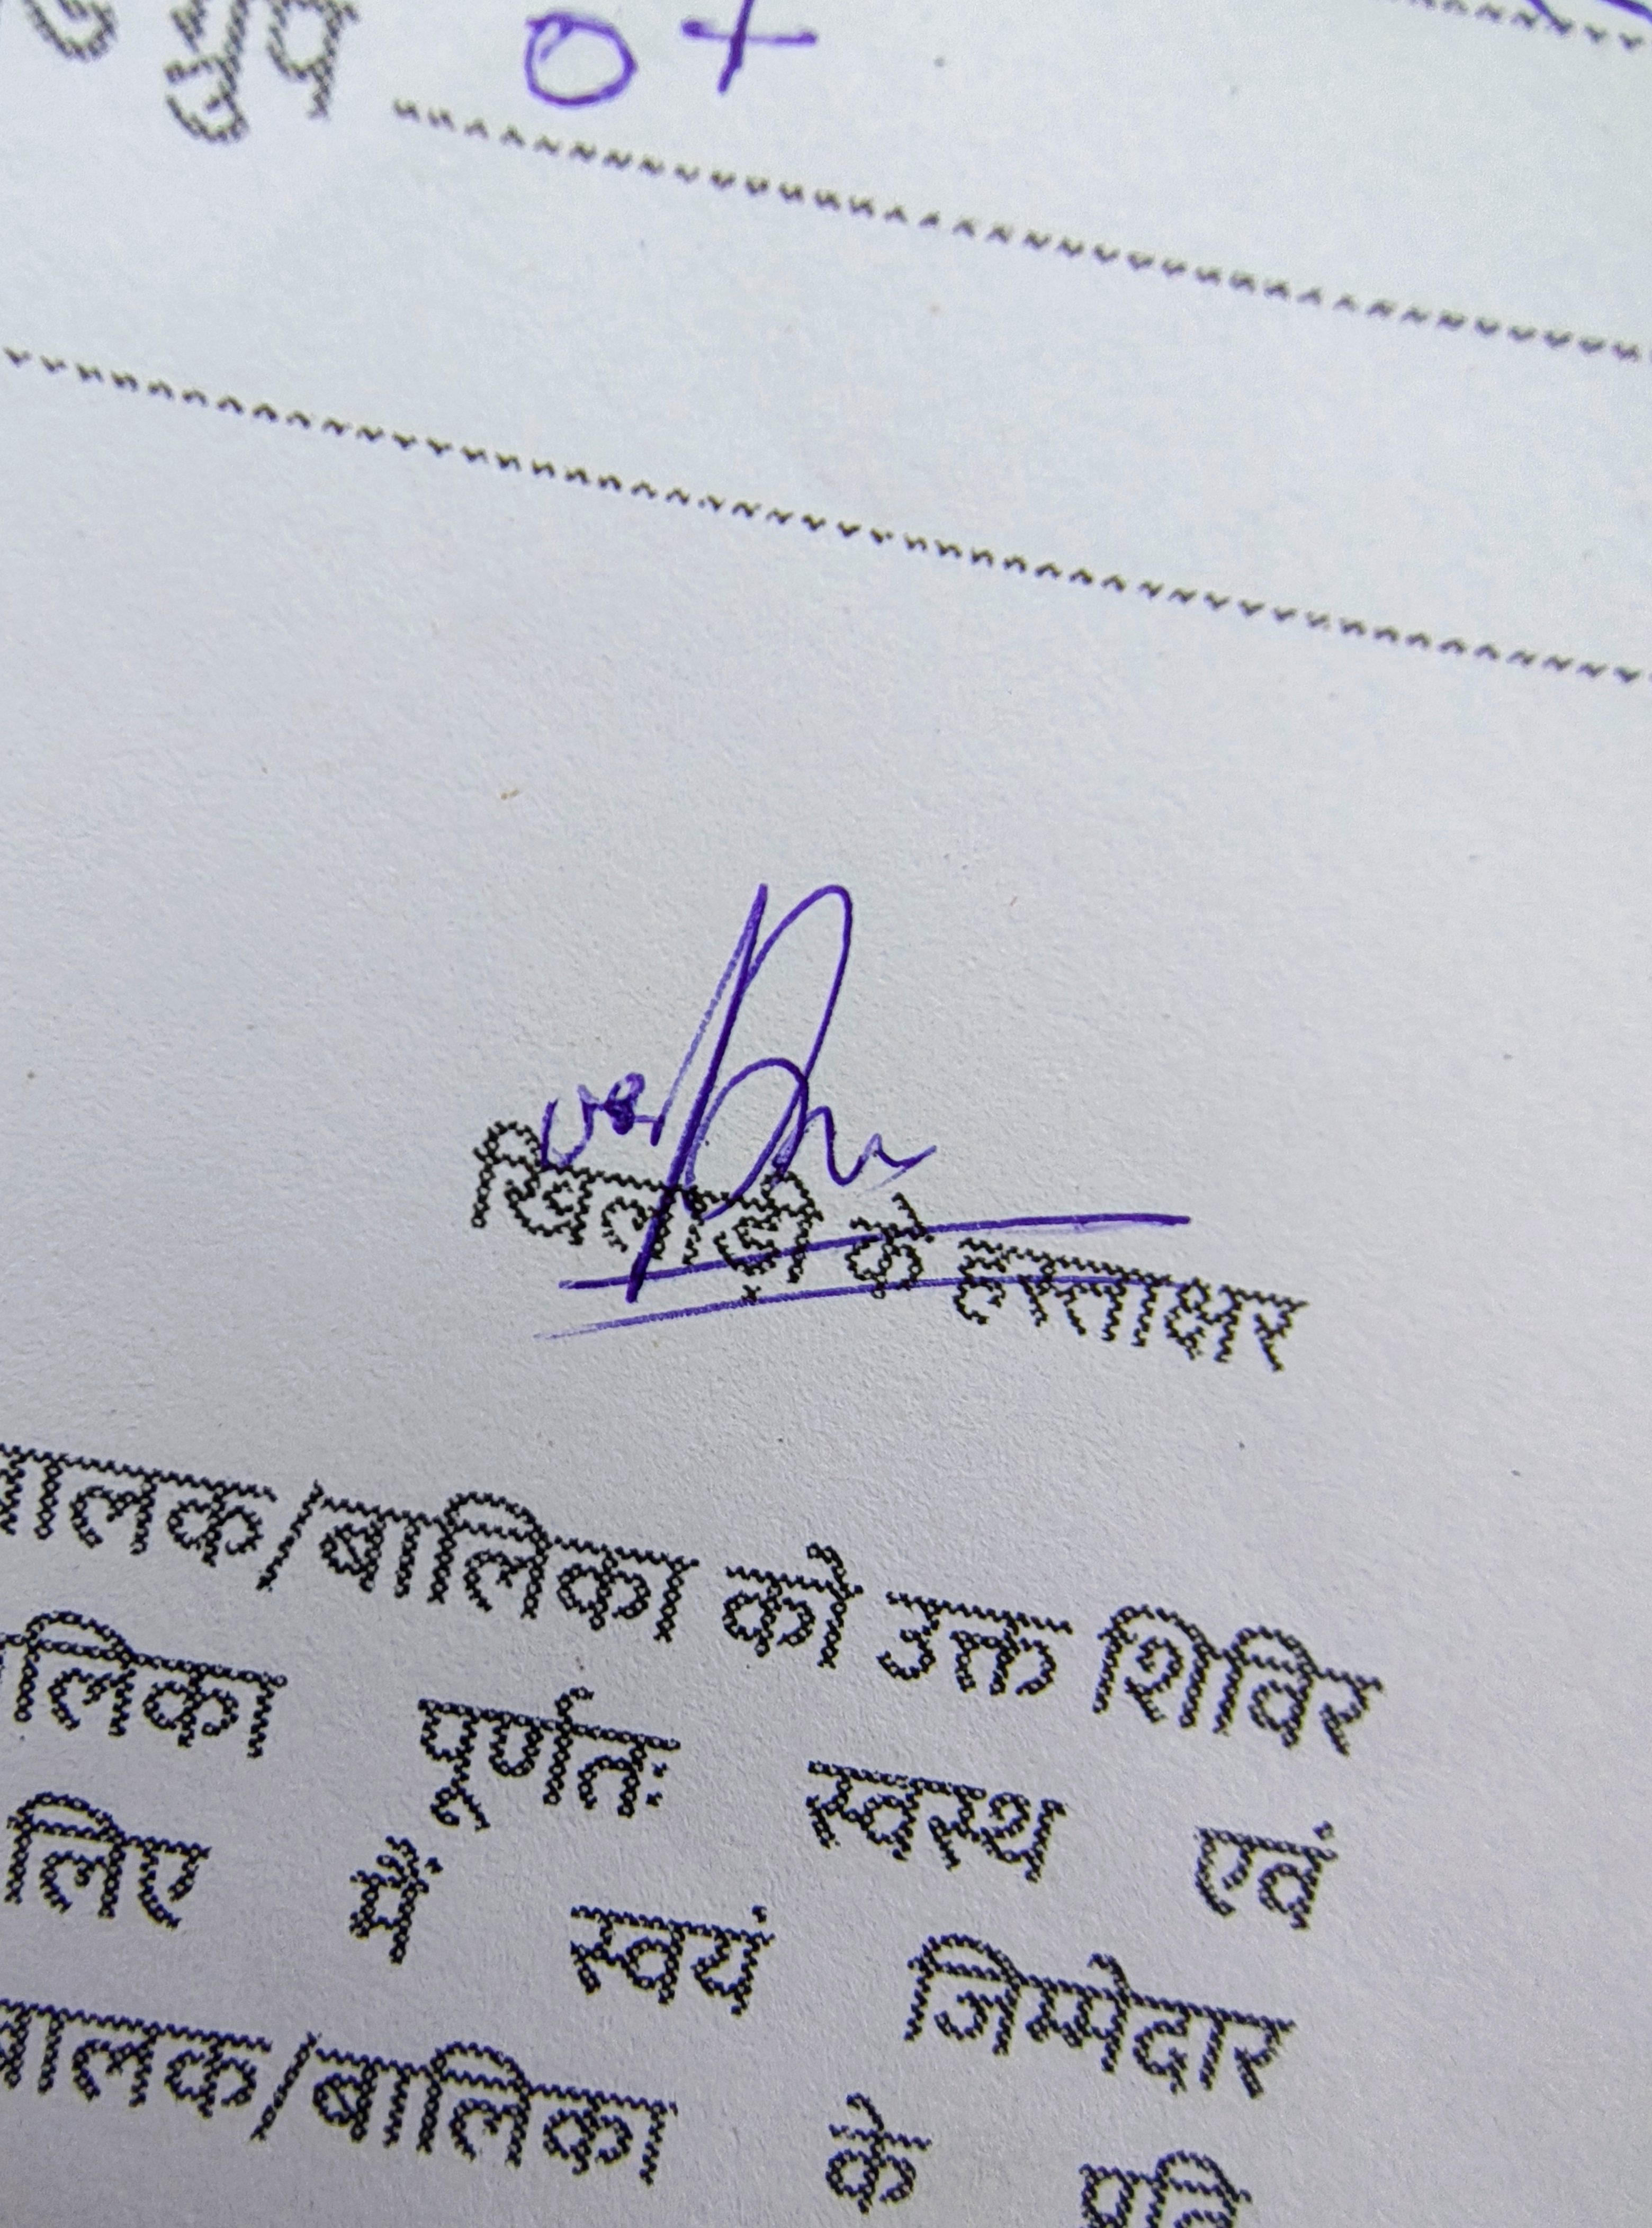 ग्रुप O+
खिलाड़ी के हस्ताक्षर
बालक/बालिका को उक्त शिविर
बालिका पूर्णतः स्वस्थ एवं
लिए मैं स्वयं जिम्मेदार
बालक/बालिका के प्रति